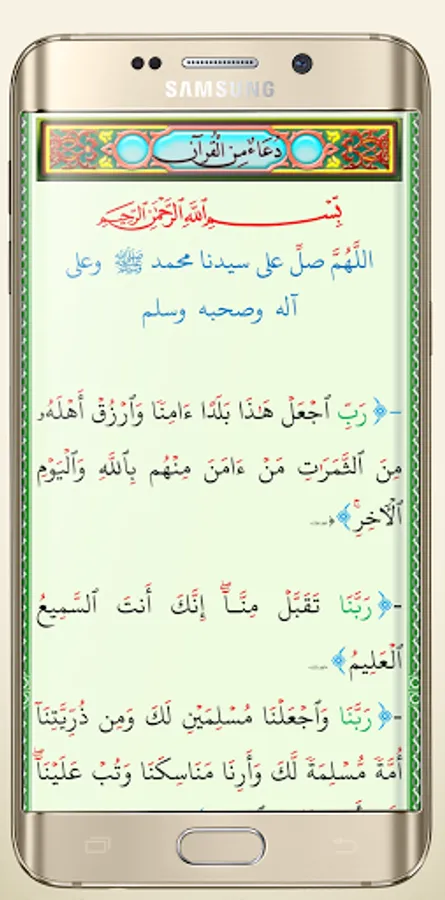 SAMSUNG
دعاء من القرآن
بِسْمِ اللَّهِ الرَّحْمَٰنِ الرَّحِيمِ
اللَّهُمَّ صلِّ على سيدنا محمد ﷺ وعلى
آله وصحبه وسلم
-﴿رَبِّ ٱجْعَلْ هَـٰذَا بَلَدًا ءَامِنًا وَٱرْزُقْ أَهْلَهُۥ
مِنَ ٱلثَّمَرَٰتِ مَنْ ءَامَنَ مِنْهُم بِٱللَّهِ وَٱلْيَوْمِ
ٱلْـَٔاخِرِۚ﴾
-﴿رَبَّنَا تَقَبَّلْ مِنَّـآۖ إِنَّكَ أَنتَ ٱلسَّمِيعُ
ٱلْعَلِيمُ﴾
-﴿رَبَّنَا وَٱجْعَلْنَا مُسْلِمَيْنِ لَكَ وَمِن ذُرِّيَّتِنَآ
أُمَّةً مُّسْلِمَةً لَّكَ وَأَرِنَا مَنَاسِكَنَا وَتُبْ عَلَيْنَآۖ